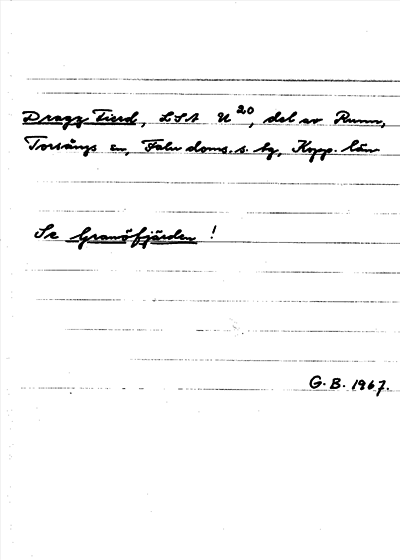 Dragg Fierd, LSA U 20, del av Runn,
Torsångs sn, Falu doms. s. bg, Kopp. län
Se Granöfjärden !
G.B. 1967.